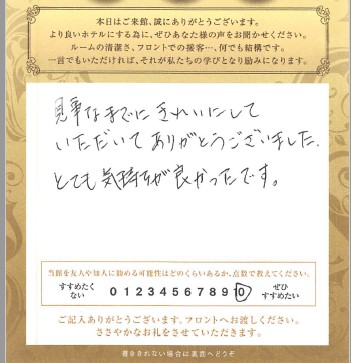 本日はご来館、誠にありがとうございます。
より良いホテルにする為に、ぜひあなた様の声をお聞かせください。
ルームの清潔さ、フロントでの接客…、何でも結構です。
一言でもいただければ、それが私たちの学びとなり励みになります。
見事なまでにきれいにして
いただいてありがとうございました.
とても気持ちが良かったです。
当館を友人や知人に勧める可能性はどのくらいあるか、点数で教えてください。
すすめたくない 0 1 2 3 4 5 6 7 8 9 10 ぜひすすめたい
ご記入ありがとうございます。フロントへお渡しください。
ささやかなお礼をさせていただきます。
書ききれない場合は裏面へどうぞ